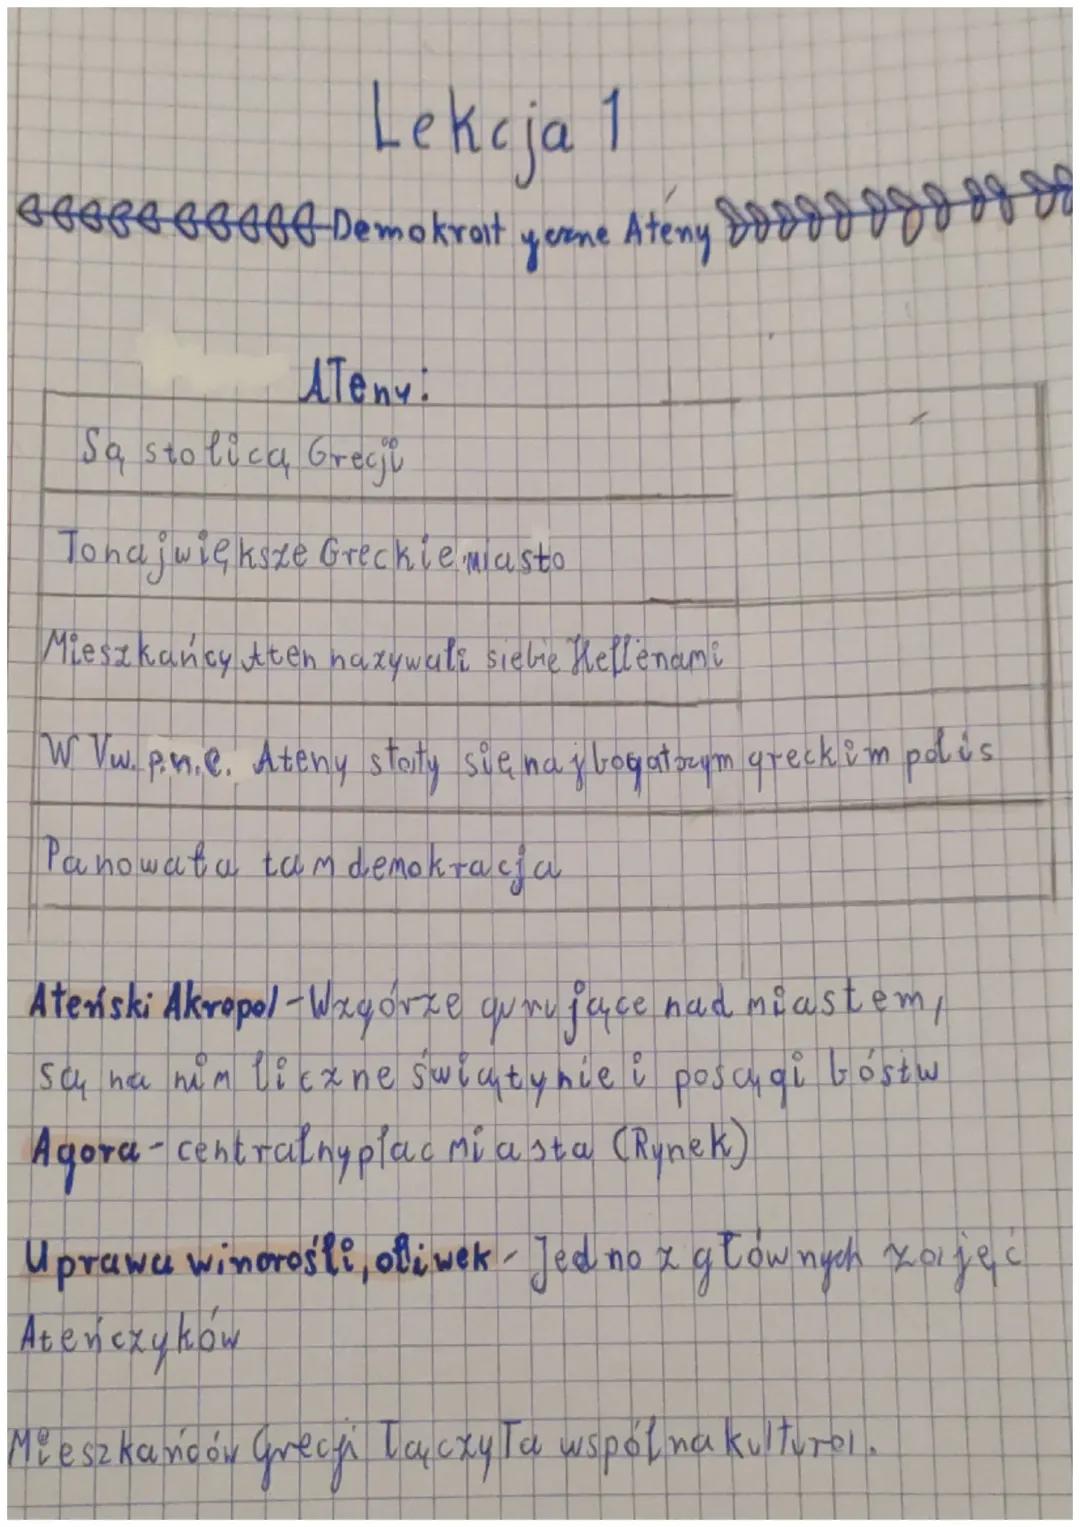 Lekcja 1
Demokratyczne Ateny
ATeny:
Są stolicą Grecji
To największe Greckie miasto
Mieszkańcy Aten nazywali siebie Hellenami
W Vw. p.n.e. Ateny stały się najbogatszym greckim polis
Panowała tam demokracja
Ateński Akropol - Wzgórze gurujące nad miastem,
są na nim liczne świątynie i posągi bóstw
Agora - centralny plac miasta (Rynek)
Uprawa winorośli, oliwek - Jedno z głównych zajęć
Ateńczyków
Mieszkańców Grecji łączyła wspólna kultura.